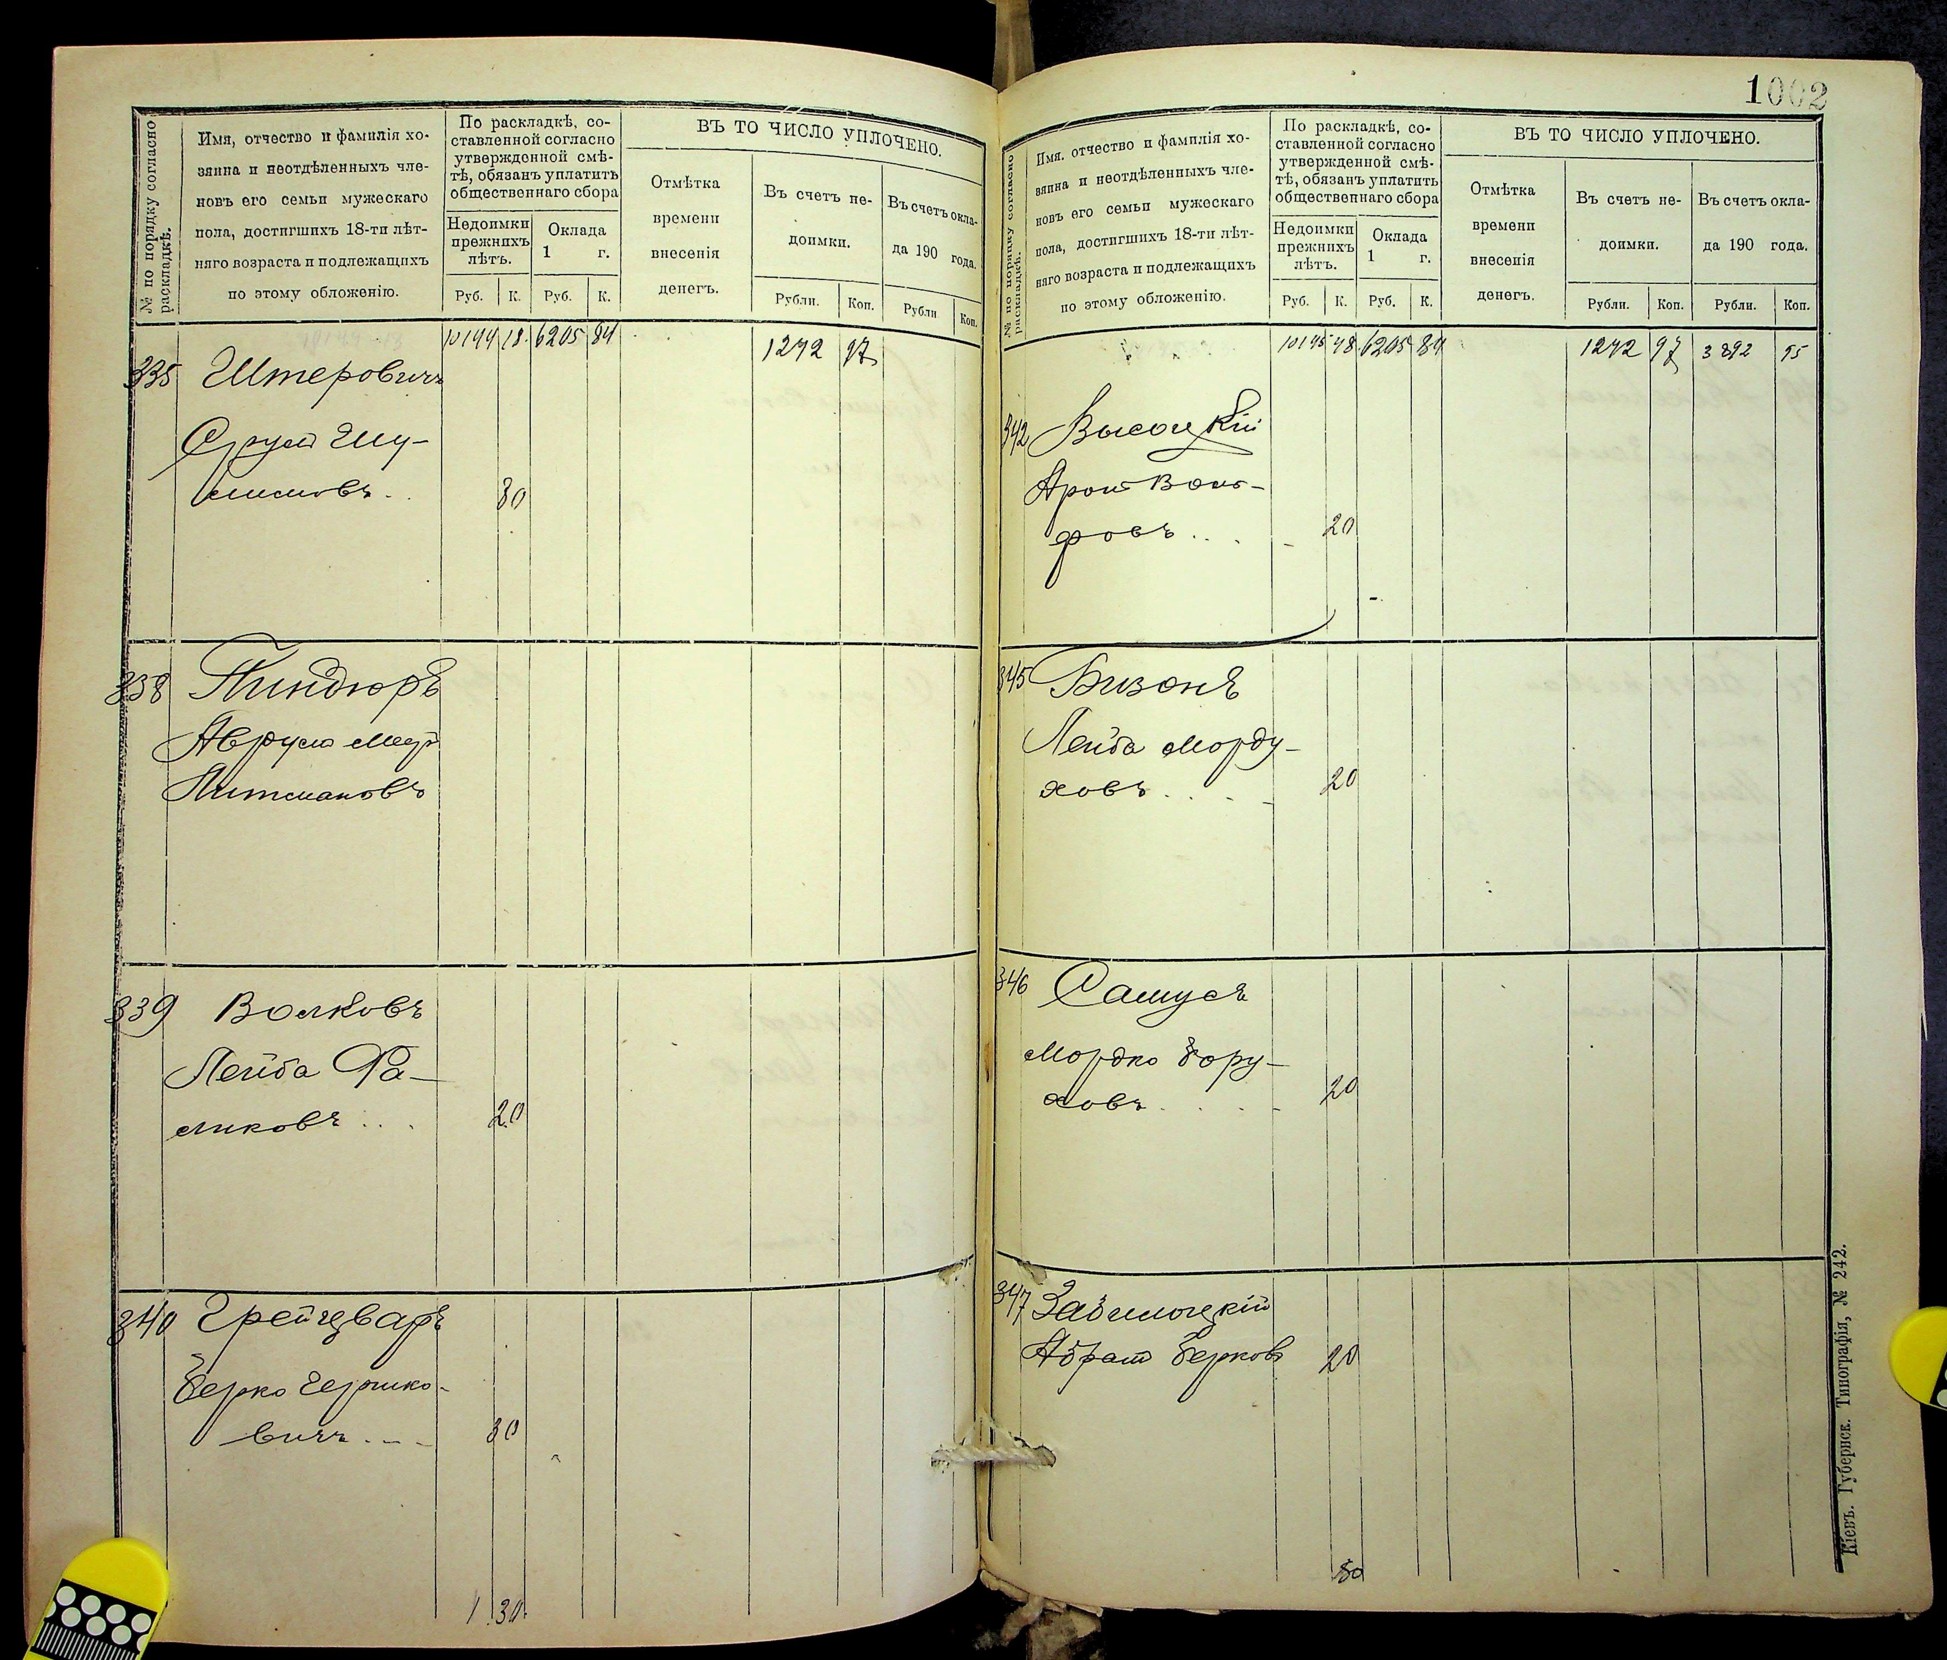 № по порядку согласно раскладкѣ.
Имя, отчество и фамилія хо-
зяина и неотдѣленныхъ чле-
новъ его семьи мужескаго
пола, достигшихъ 18-ти лѣт-
няго возраста и подлежащихъ
по этому обложенію.
По раскладкѣ, со-
ставленной согласно
утвержденной смѣ-
тѣ, обязанъ уплатить
общественнаго сбора
Недоимки
прежнихъ
лѣтъ.
Оклада
1 г.
Руб. К. Руб. К.
ВЪ ТО ЧИСЛО УПЛОЧЕНО.
Отмѣтка
времени
внесенія
денегъ.
Въ счетъ не-
доимки.
Рубли. Коп.
Въ счетъ окла-
да 190 года.
Рубли Коп.
10144 18 6205 84 1272 97
335 Штеровичъ
Сруль Шу-
лимовъ . . 30
338 Пиндюръ
Аврумъ Меер
Питмановъ
339 Волковъ
Лейба Фа-
ликовъ . . . 20
340 Грейцваръ
Берко Гершко-
вичъ . . . 30
1 30
1002
№ по порядку согласно раскладкѣ.
Имя, отчество и фамилія хо-
зяина и неотдѣленныхъ чле-
новъ его семьи мужескаго
пола, достигшихъ 18-ти лѣт-
няго возраста и подлежащихъ
по этому обложенію.
По раскладкѣ, со-
ставленной согласно
утвержденной смѣ-
тѣ, обязанъ уплатить
общественнаго сбора
Недоимки
прежнихъ
лѣтъ.
Оклада
1 г.
Руб. К. Руб. К.
ВЪ ТО ЧИСЛО УПЛОЧЕНО.
Отмѣтка
времени
внесенія
денегъ.
Въ счетъ не-
доимки.
Рубли. Коп.
Въ счетъ окла-
да 190 года.
Рубли. Коп.
10145 48 6205 84 1272 97 3892 95
342 Высоцкій
Аронъ Воль-
фовъ . . . 20
345 Бизонъ
Лейба Морду-
ховъ . . . 20
346 Самусъ
Мордко Бору-
ховъ . . . . 20
347 Забилоцкій
Абрам Берковъ 20
80
Кіевъ. Губернск. Типографія, № 242.